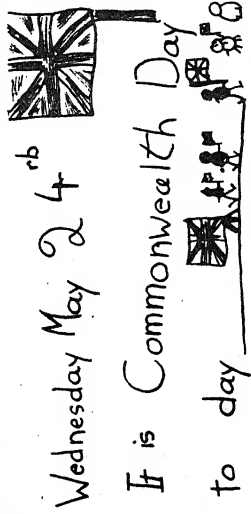 Wednesday May 24rb
It is Commonwealth Day
to day